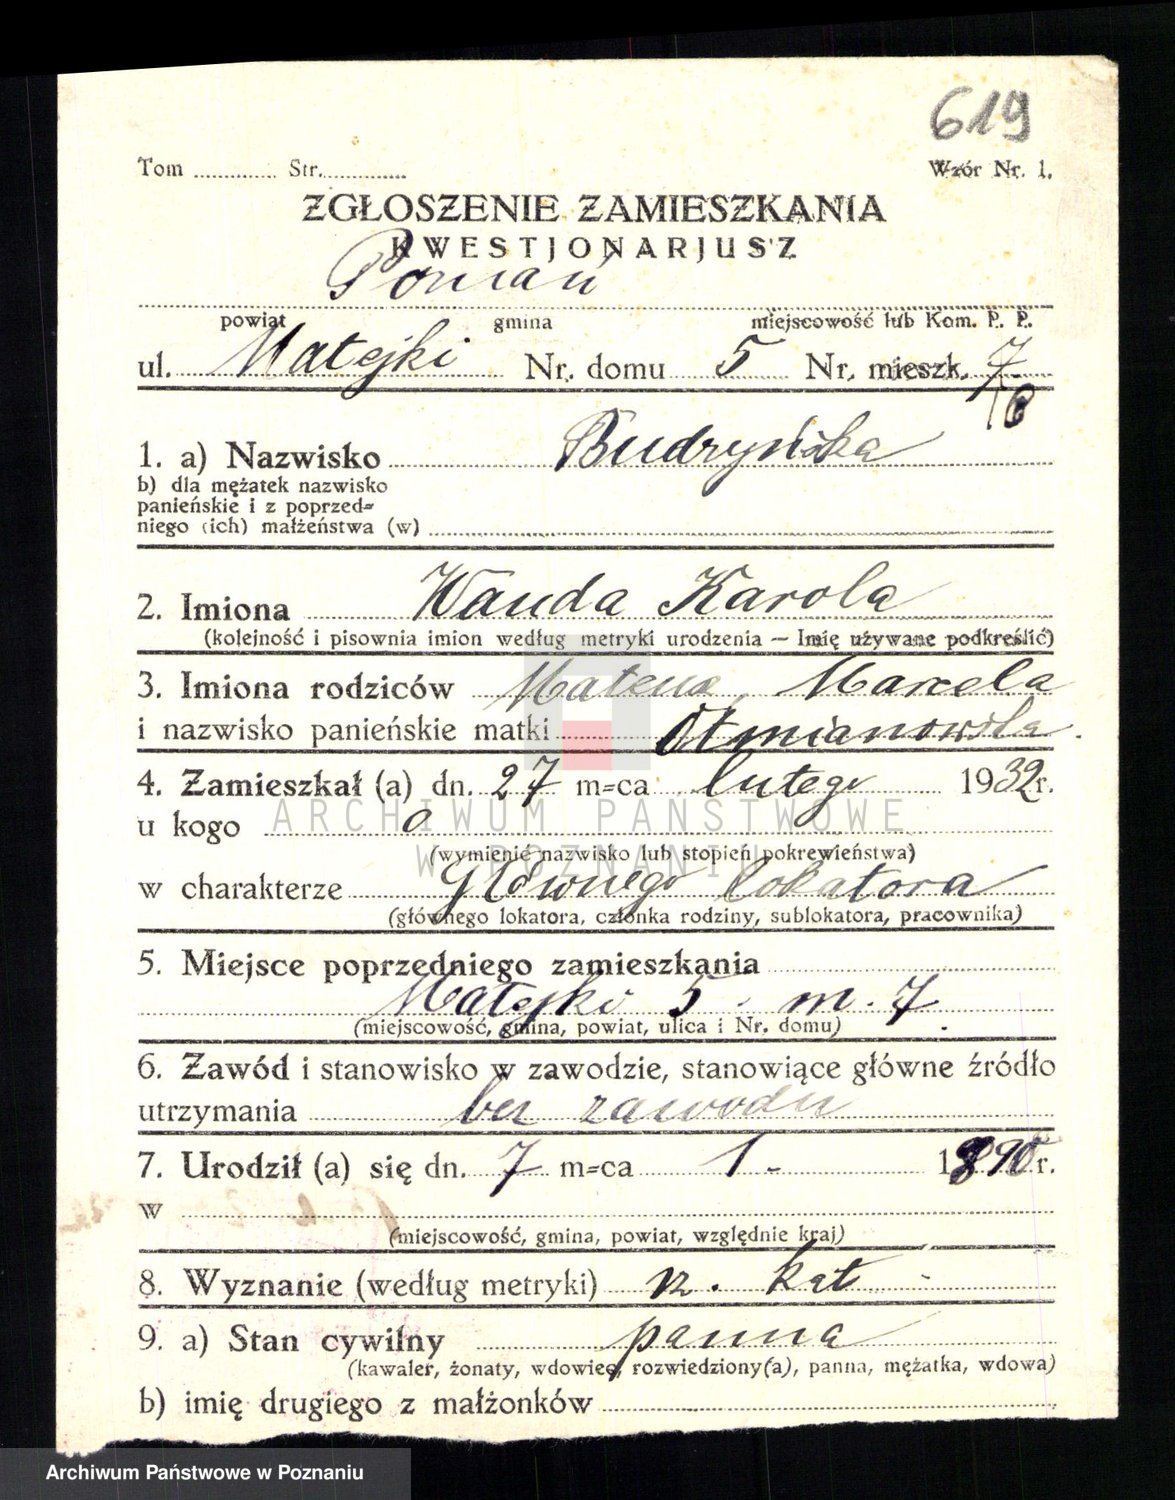 619
Tom ............ Str. ............
Wzór Nr. 1.
ZGŁOSZENIE ZAMIESZKANIA
KWESTJONARJUSZ
Poznań
powiat gmina miejscowość lub Kom. P. P.
ul. Matejki Nr. domu 5 Nr. mieszk. 7
1. a) Nazwisko Budzyńska
b) dla mężatek nazwisko
panieńskie i z poprzed=
niego (ich) małżeństwa (w)
2. Imiona Wanda Karola
(kolejność i pisownia imion według metryki urodzenia — Imię używane podkreślić)
3. Imiona rodziców Mateusz, Marcela
i nazwisko panieńskie matki Otmianowska.
4. Zamieszkał (a) dn. 27 m=ca lutego 1932 r.
ARCHIWUM PAŃSTWOWE
u kogo o
(wymienić nazwisko lub stopień pokrewieństwa)
W POZNANIU
w charakterze głównego lokatora
(głównego lokatora, członka rodziny, sublokatora, pracownika)
5. Miejsce poprzedniego zamieszkania
Matejki 5. m. 7.
(miejscowość, gmina, powiat, ulica i Nr. domu)
6. Zawód i stanowisko w zawodzie, stanowiące główne źródło
utrzymania bez zawodu
7. Urodził (a) się dn. 7 m=ca 1. 1890 r.
w
(miejscowość, gmina, powiat, względnie kraj)
8. Wyznanie (według metryki) rz. kat
9. a) Stan cywilny panna
(kawaler, żonaty, wdowiec, rozwiedziony(a), panna, mężatka, wdowa)
b) imię drugiego z małżonków
Archiwum Państwowe w Poznaniu